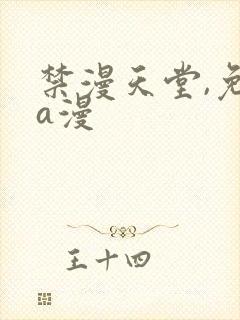 禁漫天堂,免
a漫
王十四